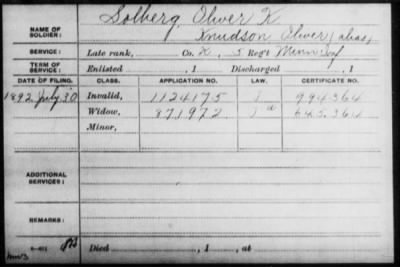 NAME OF SOLDIER: Solberg, Oliver K
Knudson Oliver (alias)
SERVICE: Late rank, Co. K, 5 Reg't Minn Inf
TERM OF SERVICE: Enlisted , 1 Discharged , 1
DATE OF FILING. CLASS. APPLICATION NO. LAW. CERTIFICATE NO.
1892 July 30 Invalid, 1124175 994364
Widow, 871972 645,364
Minor,
ADDITIONAL SERVICES:
REMARKS:
Died , 1 , at